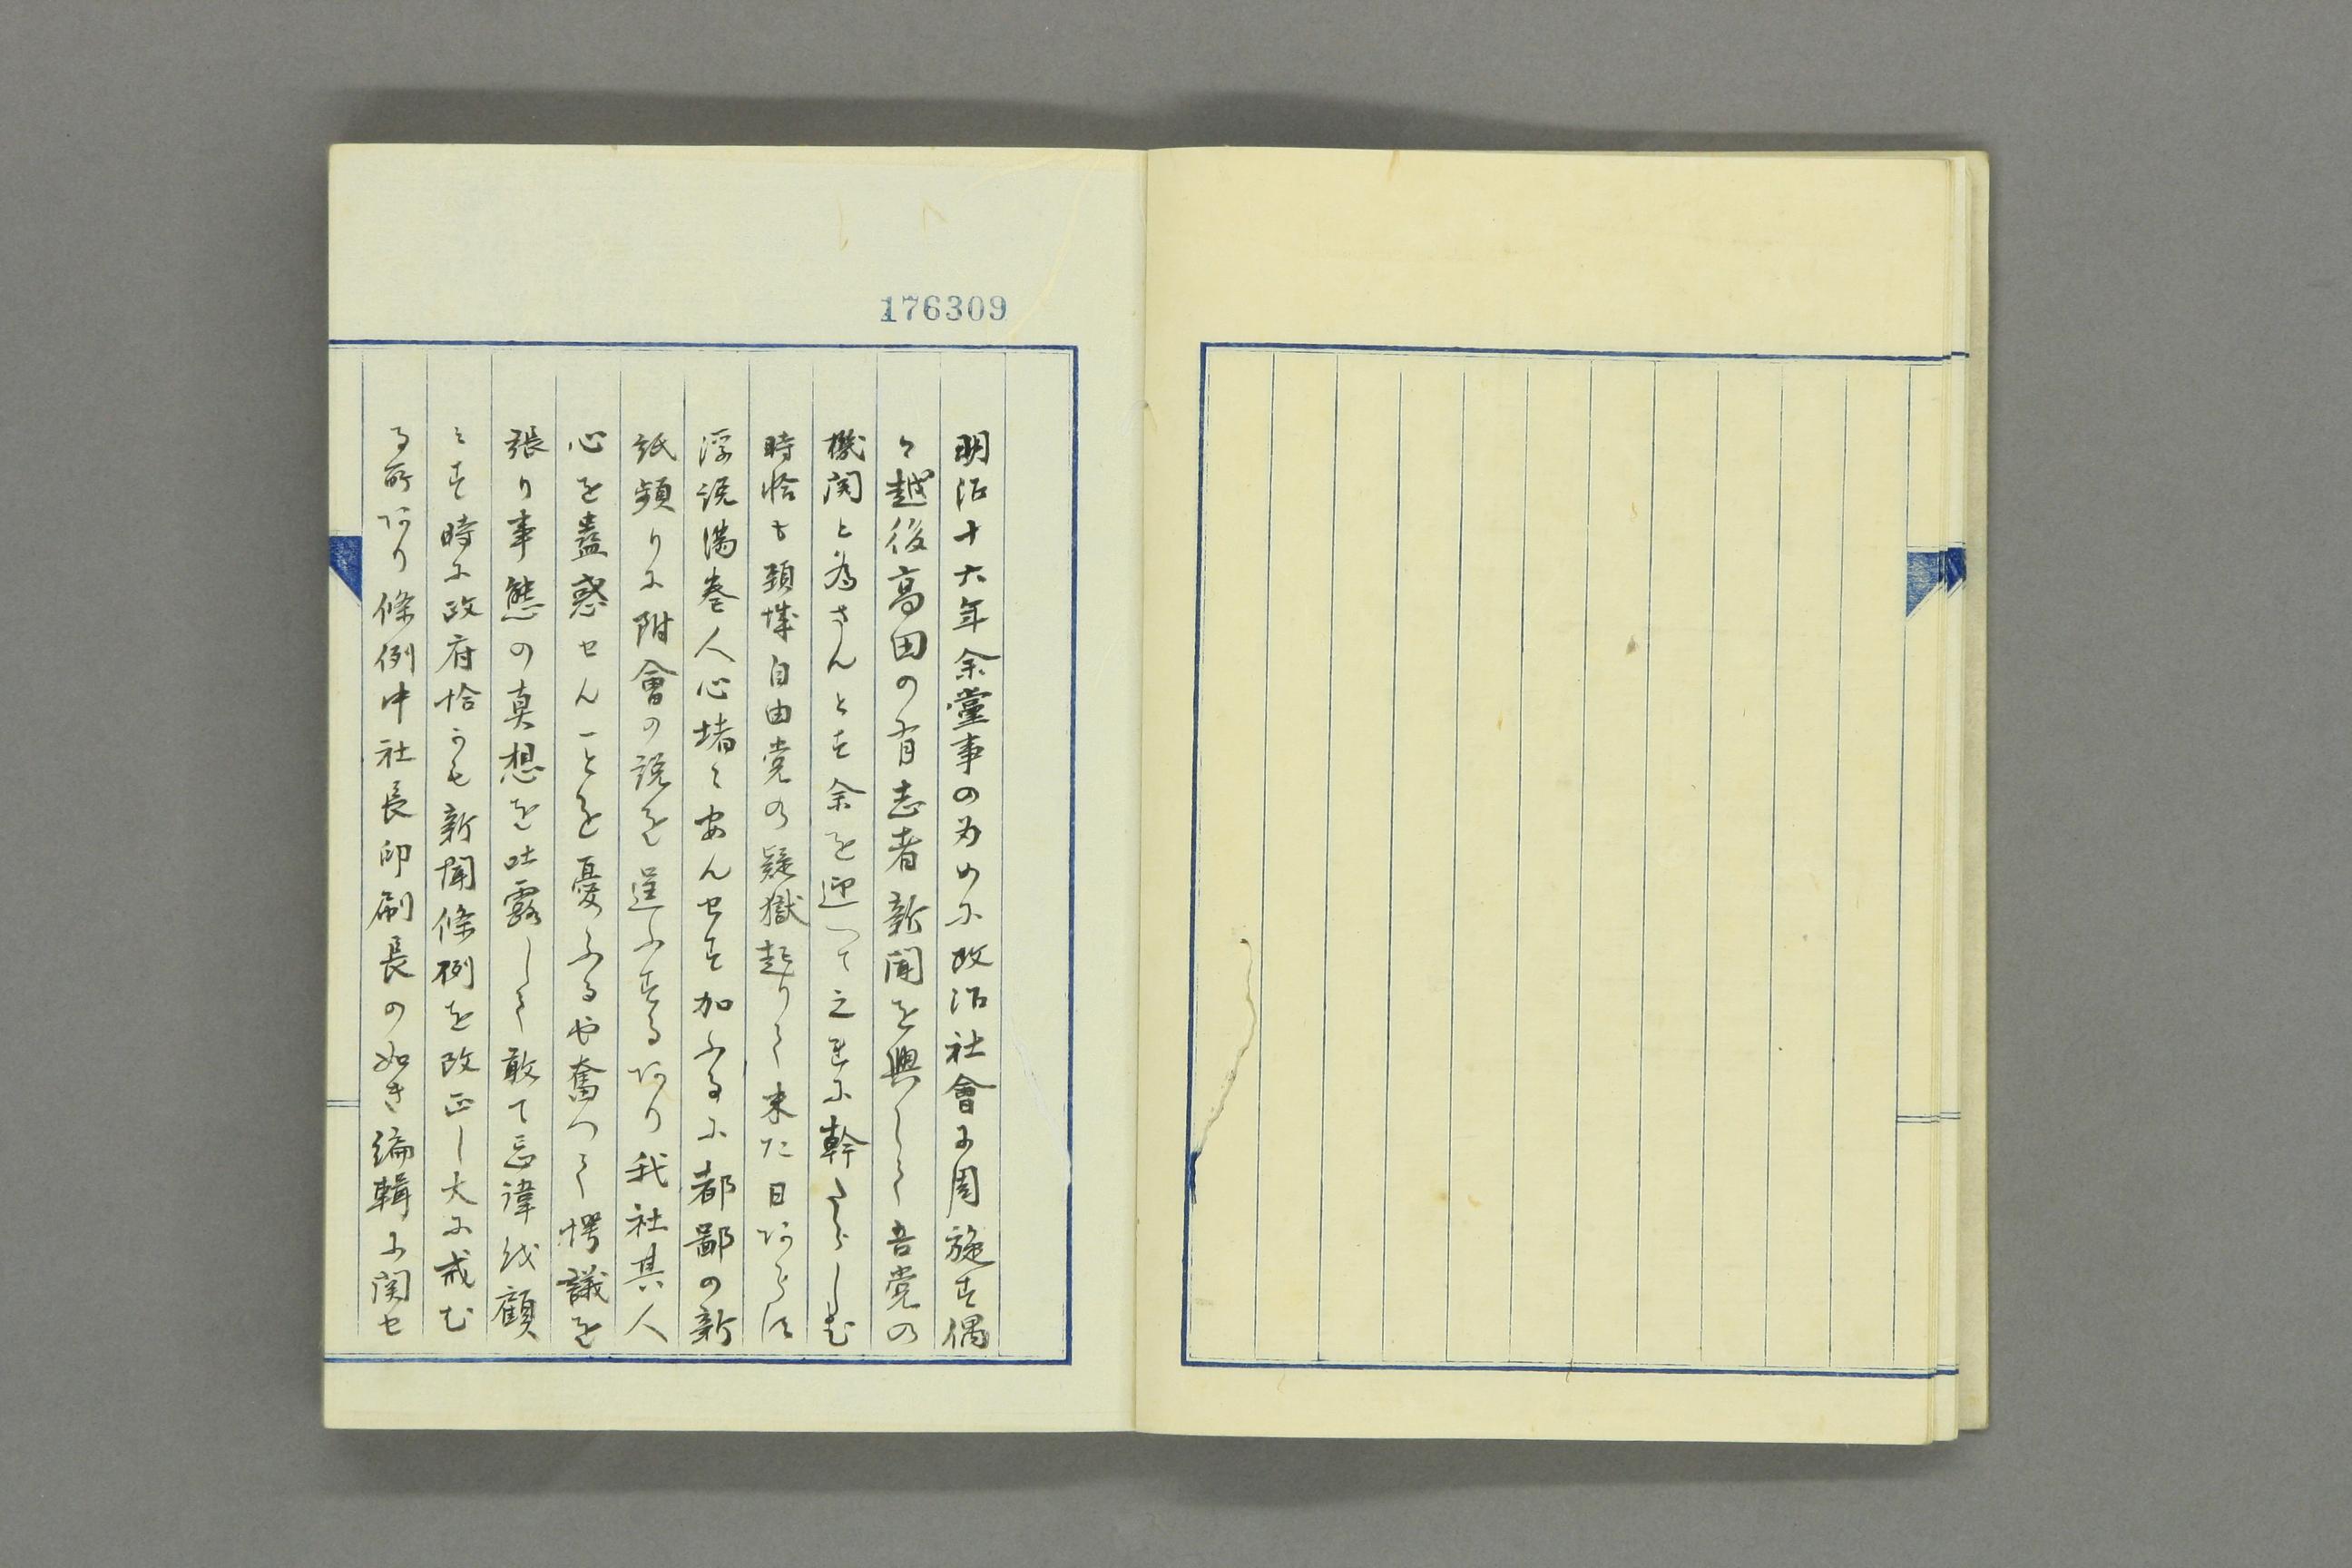 176309
明治十六年余黨事の為めに政治社會に周旋す偶
々越後高田の有志者新聞を興して吾党の
機関と為さんとす余を迎へて之れに幹たらしむ
時恰も頚城自由党の疑獄起りて未た日あらす
浮説満巷人心堵に安んせす加ふるに都鄙の新
紙頻りに附會の説を逞ふするあり我社其人
心を蠱惑せんことを憂ふるや奮つて愕議を
張り事態の真想を吐露して敢て忌諱を顧
みす時に政府恰かも新聞條例を改正し大に戒む
る所あり條例中社長印刷長の如き編輯に関せ